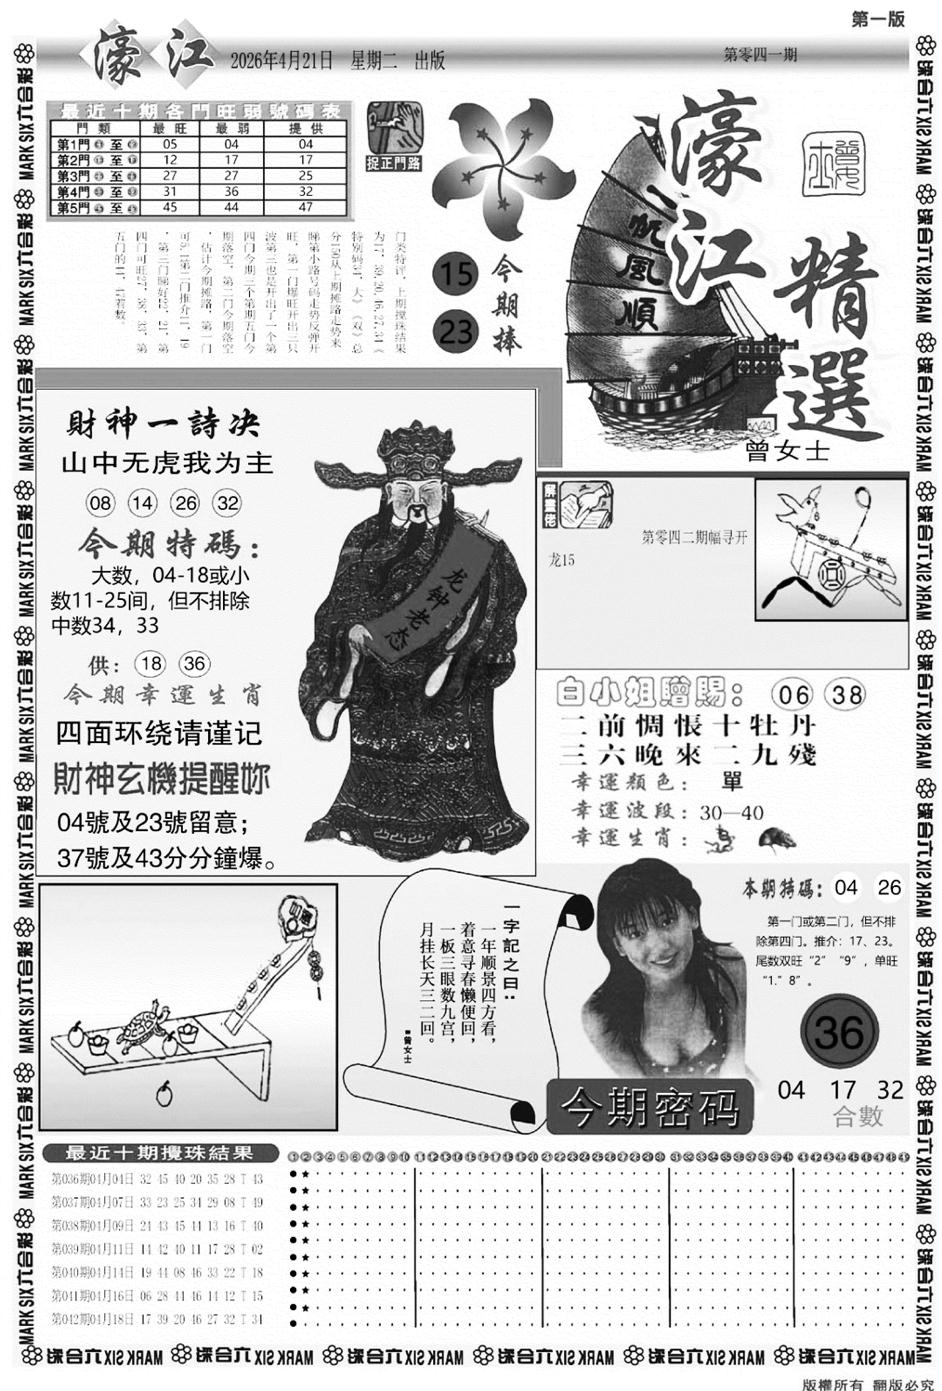 第一版
濠江 2026年4月21日 星期二 出版
第零四一期
最近十期各門旺弱號碼表
門類 最旺 最弱 提供
第1門 至 05 04 04
第2門 至 12 17 17
第3門 至 27 27 25
第4門 至 31 36 32
第5門 至 45 44 47
捉正門路
15
23
今期捧
濠江精選
一帆風順
曾女士
门类特评，上期搅珠结果
为17、39、20、46、27、34《
特别码34，大》《双》总
分150从上期摊路走势来
睇第小路号码走势反弹开
旺，第一门爆旺开出三只
波第三也是开出了一个第
四门今期三个第期五门今
期落空，第二门今期落空
，估计今期摊路，第一门
五门的41、45若数。
財神一詩决
山中无虎我为主
08 14 26 32
今期特碼：
大数，04-18或小
数11-25间，但不排除
中数34，33
供：18 36
今期幸運生肖
四面环绕请谨记
財神玄機提醒妳
04號及23號留意；
37號及43分分鐘爆。
龙钟老态
第零四二期幅寻开
龙15
白小姐贈賜：06 38
二前惆悵十牡丹
三六晚來二九殘
幸運顏色：單
幸運波段：30—40
幸運生肖：
一字記之曰：
一年顺景四方看，
着意寻春懒便回，
一板三眼数九宫，
月挂长天三二回。
■曾女士
本期特碼：04 26
第一门或第二门，但不排
除第四门。推介：17、23。
尾数双旺“2” “9”，单旺
“1.”8”。
36
04 17 32
合數
今期密码
最近十期攪珠結果
第036期04月04日 32 45 40 20 35 28 T 43
第037期04月07日 33 23 25 34 29 08 T 49
第038期04月09日 24 43 45 44 13 16 T 40
第039期04月11日 14 42 40 11 17 28 T 02
第040期04月14日 19 44 08 46 33 22 T 18
第041期04月16日 06 28 41 46 14 12 T 15
第042期04月18日 17 39 20 46 27 32 T 34
MARK SIX 六合彩
版權所有 翻版必究